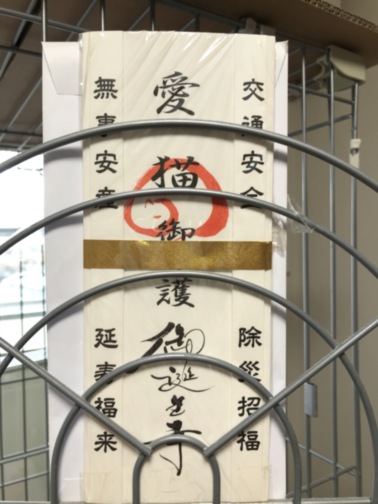 交通安全
除災招福
愛猫御護
御誕生寺
無事安産
延寿福来